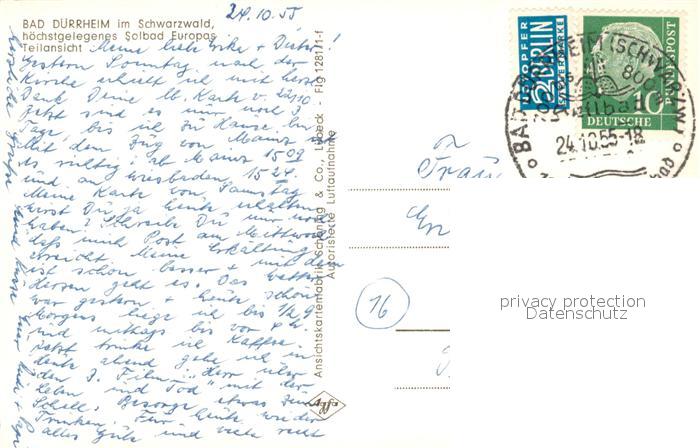 24.10.55
BAD DÜRRHEIM im Schwarzwald,
höchstgelegenes Solbad Europas
Teilansicht
Meine liebe Erika + Dieter!
Gestern Sonntag nach der
Kirche erhielt ich mit herzl.
Dank Deine lb. Karte v. 22/10
Jetzt sind es nur noch 3
Tage, bis ich zu Hause bin
Mit dem Zug von Mainz ist
es richtig: ab Mainz 1509
und an Wiesbaden 1524.
Meine Karte von Samstag
wirst Du ja heute erhalten
haben? Schreibe Du nur noch
daß mich Post am Mittwoch
erreicht. Meine Erkältung
ist schon besser + mit dem
Herzen geht es. Das Wetter
war gestern + heute schön
Morgens liege ich bis 1/2 9
und mittags bis vor 4 h.
jetzt trinke ich Kaffee.
heute abend gehe ich in
den Film: "Herr über
Leben und Tod" mit der
Schell. Besorge etwas zum
Trinken. Für heute wieder
alles Gute und viele recht
herzliche Grüße und Küsse Euer
Ansichtskartenfabrik Schöning & Co., Lübeck - Fig 1281/1-f
Autorisierte Luftaufnahme
NOTOPFER
2 BERLIN
STEUERMARKE
DEUTSCHE
BUNDESPOST
10
BAD DÜRRHEIM (SCHWARZW)
24.10.55-18
Frau
16
Agfa
privacy protection
Datenschutz